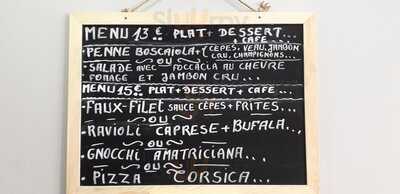 MENU 13.€ PLAT + DESSERT...
+ CAFE...
• PENNE BOSCAIOLA + (CEPES, VEAU, JAMBON
CRU, CHAMPIGNONS...
OU
• SALADE AVEC FOCCACIA AU CHEVRE
FOMAGE ET JAMBON CRU...
MENU 15€ PLAT + DESSERT + CAFE...
• FAUX-FILET SAUCE CÈPES + FRITES...
OU
• RAVIOLI CAPRESE + BUFALA...
OU
• GNOCCHI AMATRICIANA...
OU
• PIZZA CORSICA...